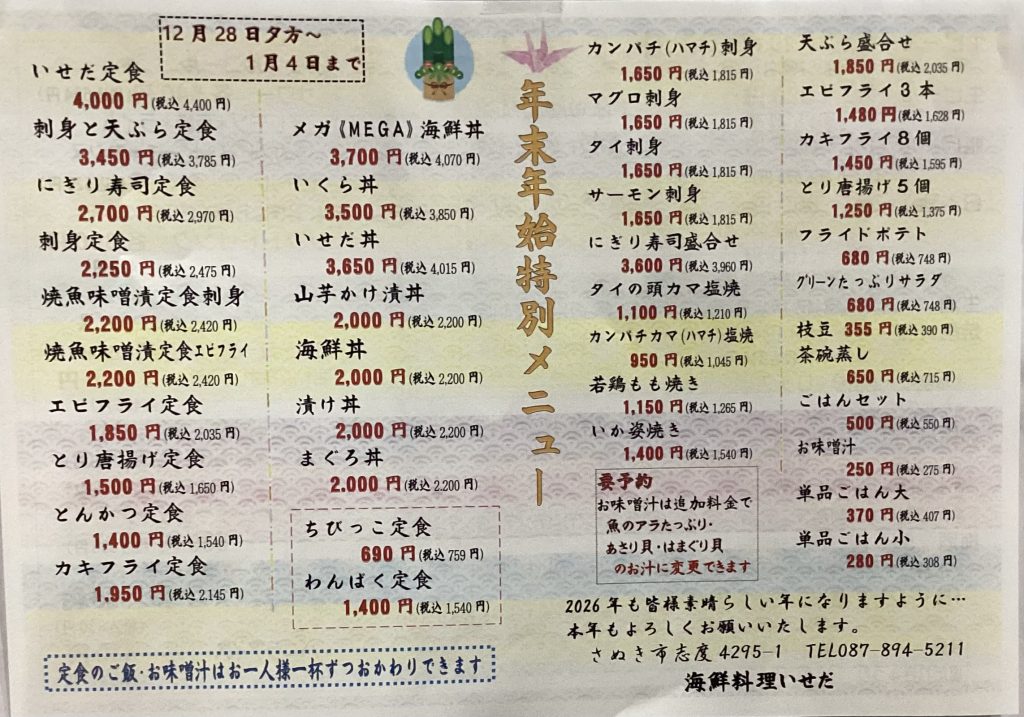 12月28日夕方～
1月4日まで
年末年始特別メニュー
いせだ定食
4,000 円(税込 4,400 円)
刺身と天ぷら定食
3,450 円(税込 3,785 円)
にぎり寿司定食
2,700 円(税込 2,970 円)
刺身定食
2,250 円(税込 2,475 円)
焼魚味噌漬定食刺身
2,200 円(税込 2,420 円)
焼魚味噌漬定食エビフライ
2,200 円(税込 2,420 円)
エビフライ定食
1,850 円(税込 2,035 円)
とり唐揚げ定食
1,500 円(税込 1,650 円)
とんかつ定食
1,400 円(税込 1,540 円)
カキフライ定食
1.950 円(税込 2.145 円)
メガ《MEGA》海鮮丼
3,700 円(税込 4,070 円)
いくら丼
3,500 円(税込 3,850 円)
いせだ丼
3,650 円(税込 4,015 円)
山芋かけ漬丼
2,000 円(税込 2,200 円)
海鮮丼
2,000 円(税込 2,200 円)
漬け丼
2,000 円(税込 2,200 円)
まぐろ丼
2.000 円(税込 2.200 円)
ちびっこ定食
690 円(税込 759 円)
わんぱく定食
1,400 円(税込 1,540 円)
定食のご飯・お味噌汁はお一人様一杯ずつおかわりできます
カンパチ(ハマチ)刺身
1,650 円(税込 1,815 円)
マグロ刺身
1,650 円(税込 1,815 円)
タイ刺身
1,650 円(税込 1,815 円)
サーモン刺身
1,650 円(税込 1,815 円)
にぎり寿司盛合せ
3,600 円(税込 3,960 円)
タイの頭カマ塩焼
1,100 円(税込 1,210 円)
カンパチカマ(ハマチ)塩焼
950 円(税込 1,045 円)
若鶏もも焼き
1,150 円(税込 1,265 円)
いか姿焼き
1,400 円(税込 1,540 円)
要予約
お味噌汁は追加料金で
魚のアラたっぷり・
あさり貝・はまぐり貝
のお汁に変更できます
天ぷら盛合せ
1,850 円(税込 2,035 円)
エビフライ3本
1,480 円(税込 1,628 円)
カキフライ8個
1,450 円(税込 1,595 円)
とり唐揚げ5個
1,250 円(税込 1,375 円)
フライドポテト
680 円(税込 748 円)
グリーンたっぷりサラダ
680 円(税込 748 円)
枝豆 355 円(税込 390 円)
茶碗蒸し
650 円(税込 715 円)
ごはんセット
500 円(税込 550 円)
お味噌汁
250 円(税込 275 円)
単品ごはん大
370 円(税込 407 円)
単品ごはん小
280 円(税込 308 円)
2026年も皆様素晴らしい年になりますように…
本年もよろしくお願いいたします。
さぬき市志度 4295-1 TEL087-894-5211
海鮮料理いせだ